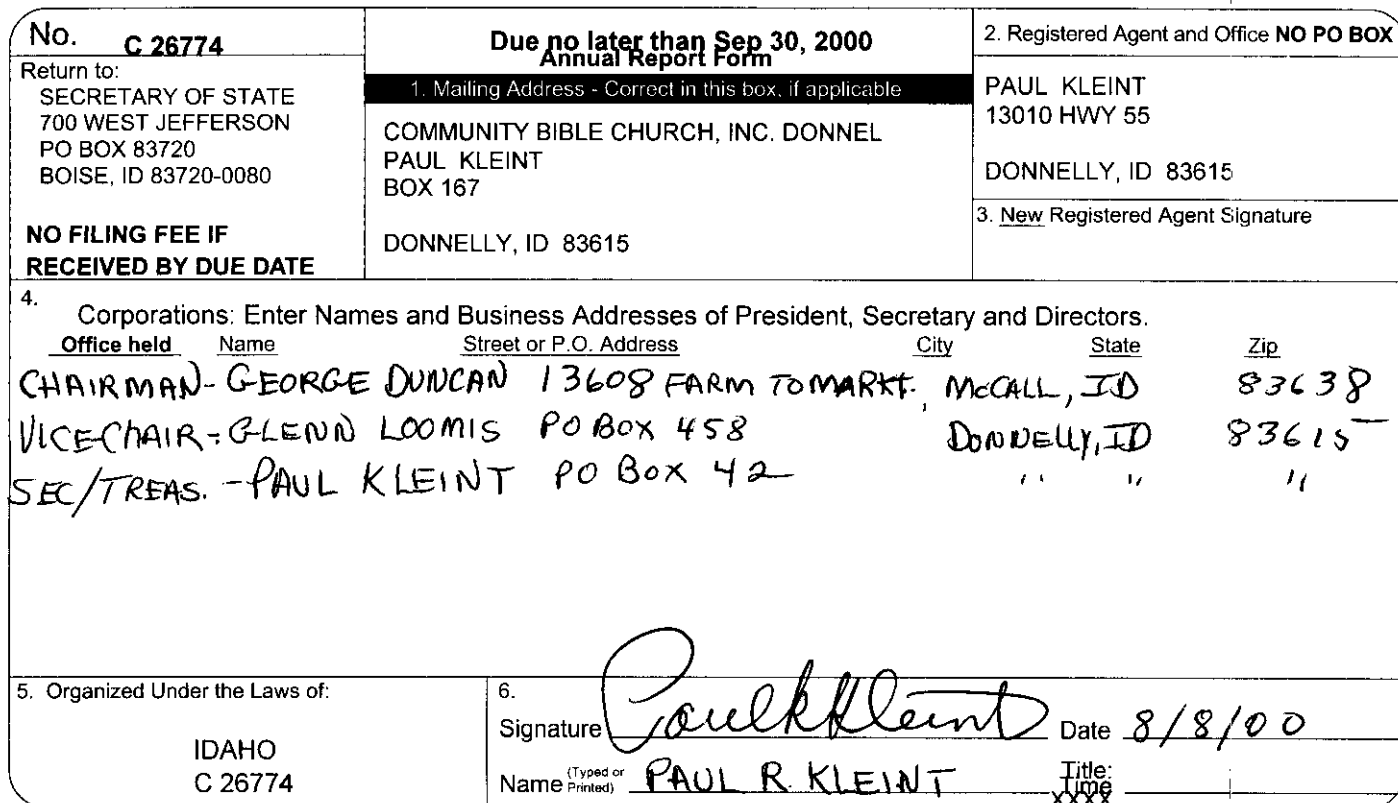 No. C 26774
Return to:
SECRETARY OF STATE
700 WEST JEFFERSON
PO BOX 83720
BOISE, ID 83720-0080
NO FILING FEE IF
RECEIVED BY DUE DATE
Due no later than Sep 30, 2000
Annual Report Form
1. Mailing Address - Correct in this box, if applicable
COMMUNITY BIBLE CHURCH, INC. DONNEL
PAUL KLEINT
BOX 167
DONNELLY, ID 83615
2. Registered Agent and Office NO PO BOX
PAUL KLEINT
13010 HWY 55
DONNELLY, ID 83615
3. New Registered Agent Signature
4.
Corporations: Enter Names and Business Addresses of President, Secretary and Directors.
Office held Name Street or P.O. Address City State Zip
CHAIRMAN- GEORGE DUNCAN 13608 FARM TO MARKT. McCALL, ID 83638
VICE-CHAIR- GLENN LOOMIS PO BOX 458 DONNELLY, ID 83615
SEC/TREAS. - PAUL KLEINT PO BOX 42 " " "
5. Organized Under the Laws of:
IDAHO
C 26774
6.
Signature Paul R Kleint Date 8/8/00
Name (Typed or Printed) PAUL R. KLEINT Title:
Time
XXXX